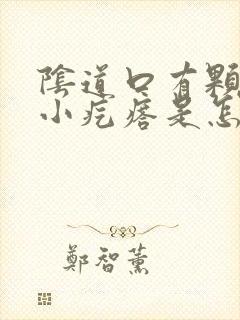 陰道口有顆
小疙瘩是怎
鄭智薰